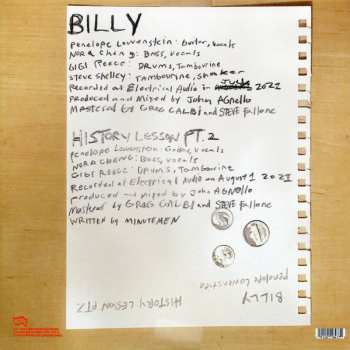 BILLY
Penelope Lowenstein: Guitar, vocals
Nora Cheng: Bass, vocals
GIGI Reece: DRUMS, Tambourine
STEVE SHELLEY: Tambourine, Shaker
Recorded at Electrical Audio in July 2021
Produced and Mixed by John Agnello
Mastered by GREG CALBI and STEVE Fallone
HISTORY LESSON PT. 2
Penelope Lowenstein: Guitar, vocals
NORA CHENG: Bass, vocals
GIGI REECE: DRUMS, Tambourine
Recorded at Electrical Audio on August 1 2021
produced and mixed by John AGNello
Mastered by GREG CALBI and STEVE Fallone
WRITTEN by MINUTEMEN
HISTORY LESSON PT2
Penelope Lowenstein
BILLY